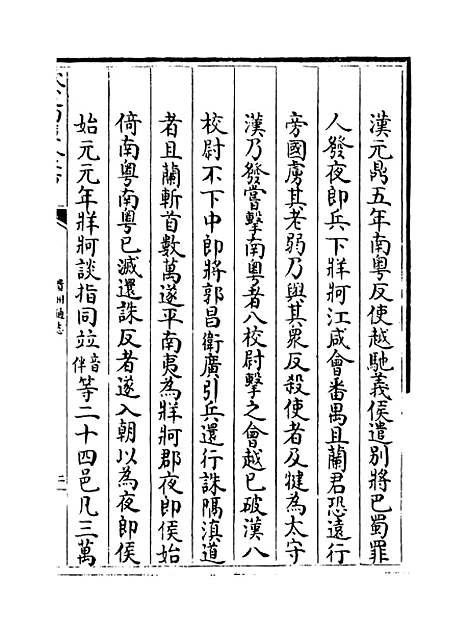 漢元鼎五年南粵反使越馳義侯遣别將巴蜀罪
人發夜郎兵下牂牁江咸㑹番禺且蘭君恐遠行
旁國虜其老弱乃與其衆反殺使者及犍為太守
漢乃發嘗擊南粵者八校尉擊之㑹越已破漢八
校尉不下中郎將郭昌衛廣引兵還行誅隔滇道
者且蘭斬首數萬遂平南夷為牂牁郡夜郎侯始
倚南粵南粵已滅還誅反者遂入朝以為夜郎侯
始元元年牂牁談指同竝音伴等二十四邑凡三萬